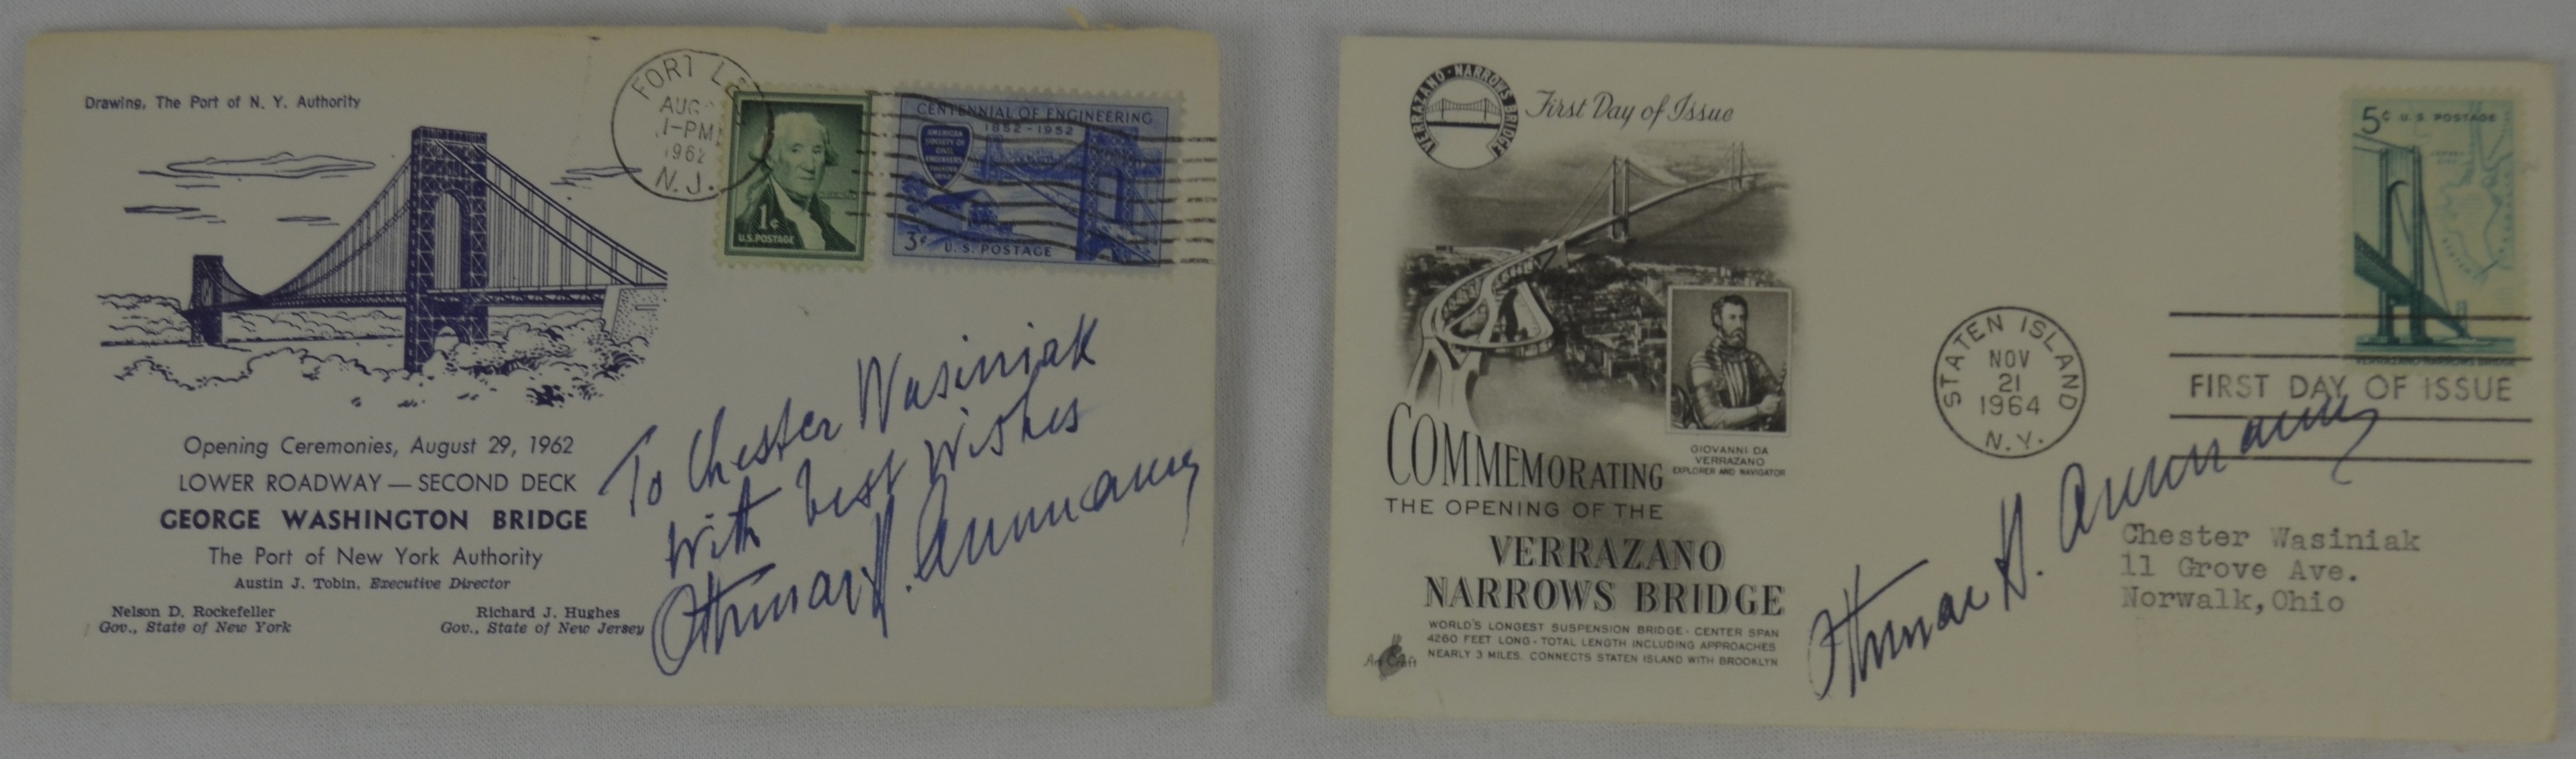 Drawing, The Port of N. Y. Authority
FORT LEE
AUG
1-PM
1962
N.J.
1¢
U.S. POSTAGE
CENTENNIAL OF ENGINEERING
1852-1952
AMERICAN
SOCIETY OF
CIVIL
ENGINEERS
3¢
U.S. POSTAGE
Opening Ceremonies, August 29, 1962
LOWER ROADWAY — SECOND DECK
GEORGE WASHINGTON BRIDGE
The Port of New York Authority
Austin J. Tobin, Executive Director
Nelson D. Rockefeller
Gov., State of New York
Richard J. Hughes
Gov., State of New Jersey
To Chester Wasiniak
with best wishes
Othmar H. Ammann
VERRAZANO-NARROWS BRIDGE
First Day of Issue
GIOVANNI DA
VERRAZANO
EXPLORER AND NAVIGATOR
COMMEMORATING
THE OPENING OF THE
VERRAZANO
NARROWS BRIDGE
WORLD'S LONGEST SUSPENSION BRIDGE - CENTER SPAN
4260 FEET LONG - TOTAL LENGTH INCLUDING APPROACHES
NEARLY 3 MILES. CONNECTS STATEN ISLAND WITH BROOKLYN
Art Craft
STATEN ISLAND
NOV
21
1964
N.Y.
5¢ U.S. POSTAGE
VERRAZANO-NARROWS BRIDGE
FIRST DAY OF ISSUE
Othmar H. Ammann
Chester Wasiniak
11 Grove Ave.
Norwalk,Ohio